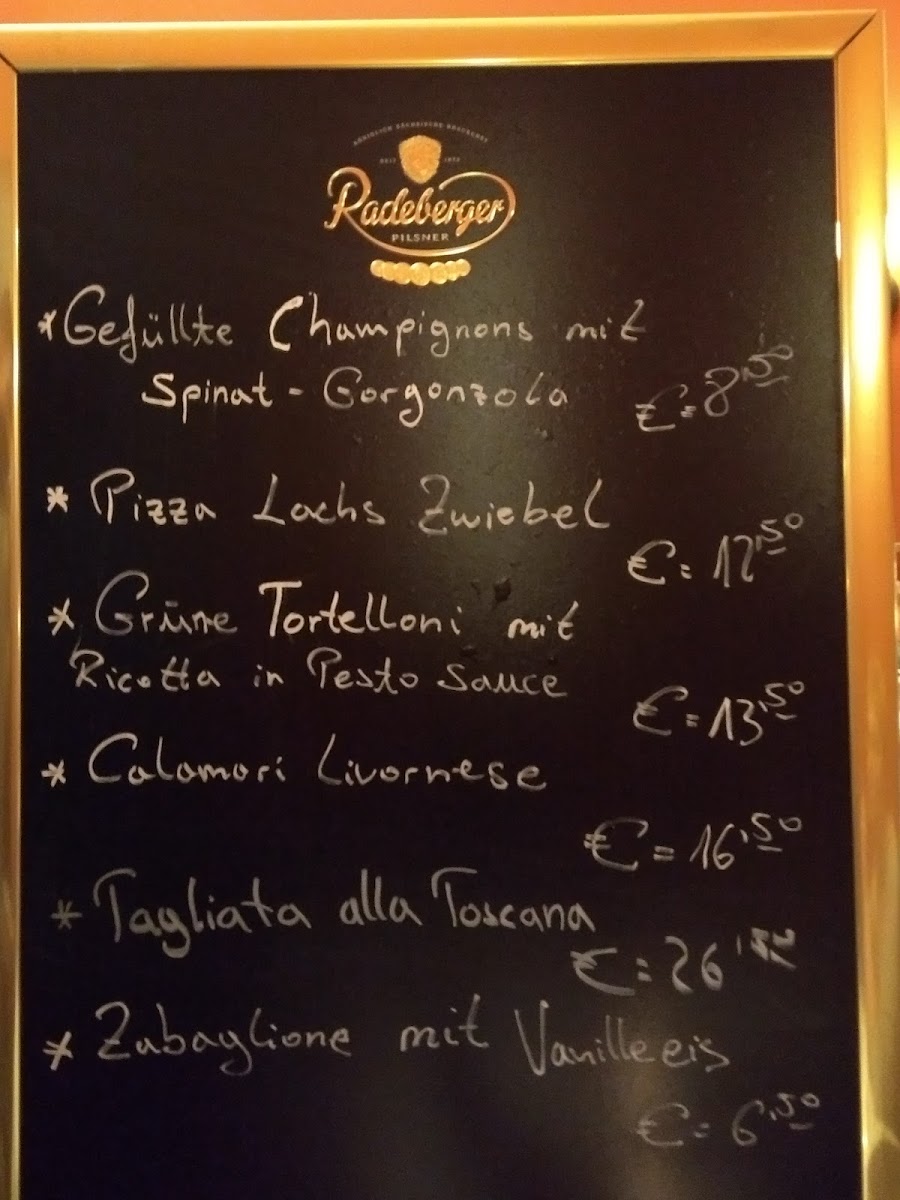 KÖNIGLICH SÄCHSISCHE BRAUEREI
SEIT 1872
Radeberger
PILSNER
*Gefüllte Champignons mit
Spinat - Gorgonzola
€=8,50
* Pizza Lachs Zwiebel
€=12,50
* Grüne Tortelloni mit
Ricotta in Pesto Sauce
€=13,50
* Calamari Livornese
€=16,50
* Tagliata alla Toscana
€=26
* Zabaglione mit Vanilleeis
€=6,50